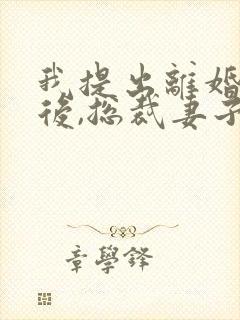 我提出離婚
後,總裁妻子
章學鋒